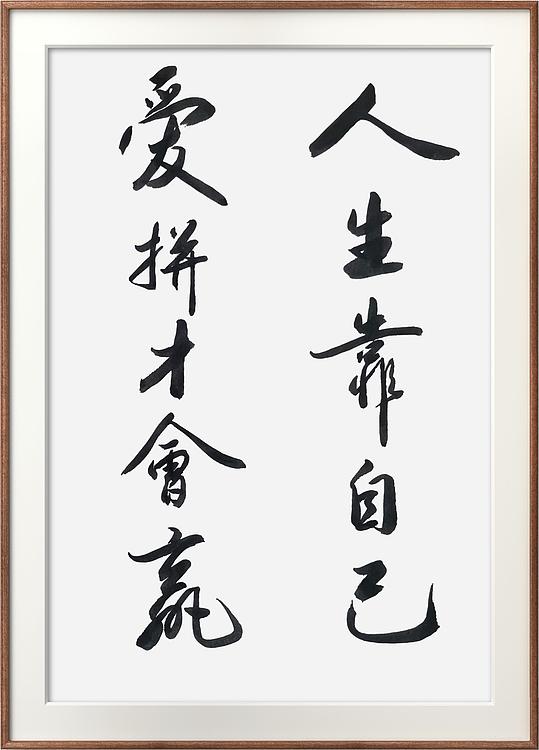 人生靠自己
愛拼才會赢